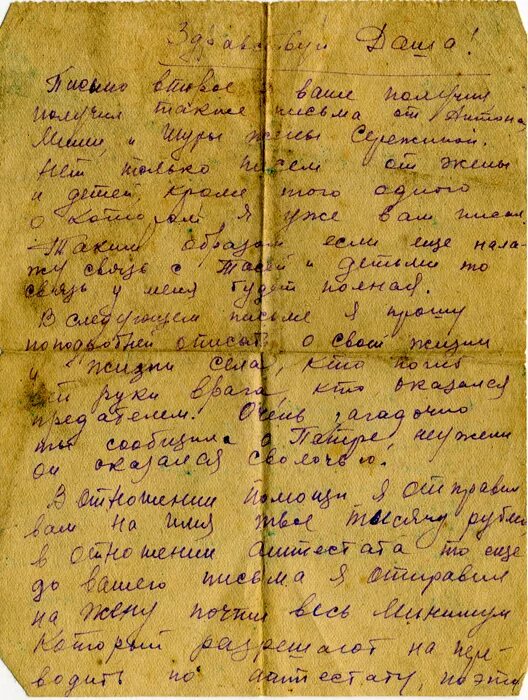 Здравствуй Даша!
Письмо второе ваше получил
получил также письма от Антона
Миши и Шуры жены Сережиной.
Нет только писем от жены
и детей, кроме того одного
о котором я уже вам писал
Таким образом если еще нала-
жу связь с Тасей и детьми то
связь у меня будет полная.
В следующем письме я прошу
поподробней описать о своей жизни
и жизни села, кто погиб
от руки врага, кто оказался
предателем. Очень загадочно
ты сообщила о неужели
он оказался сволочью.
В отношении помощи я отправил
вам на имя твое тысячу рублей
в отношении аттестата то еще
до вашего письма я отправил
на жену почти весь минимум
который разрешают на пере-
водить по аттестату, поэто